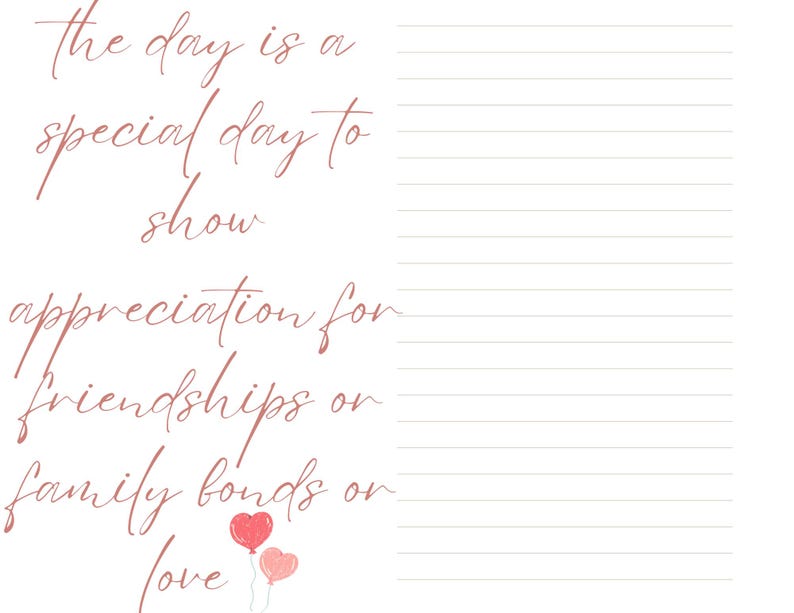 the day is a
special day to
show
appreciation for
friendships or
family bonds or
love